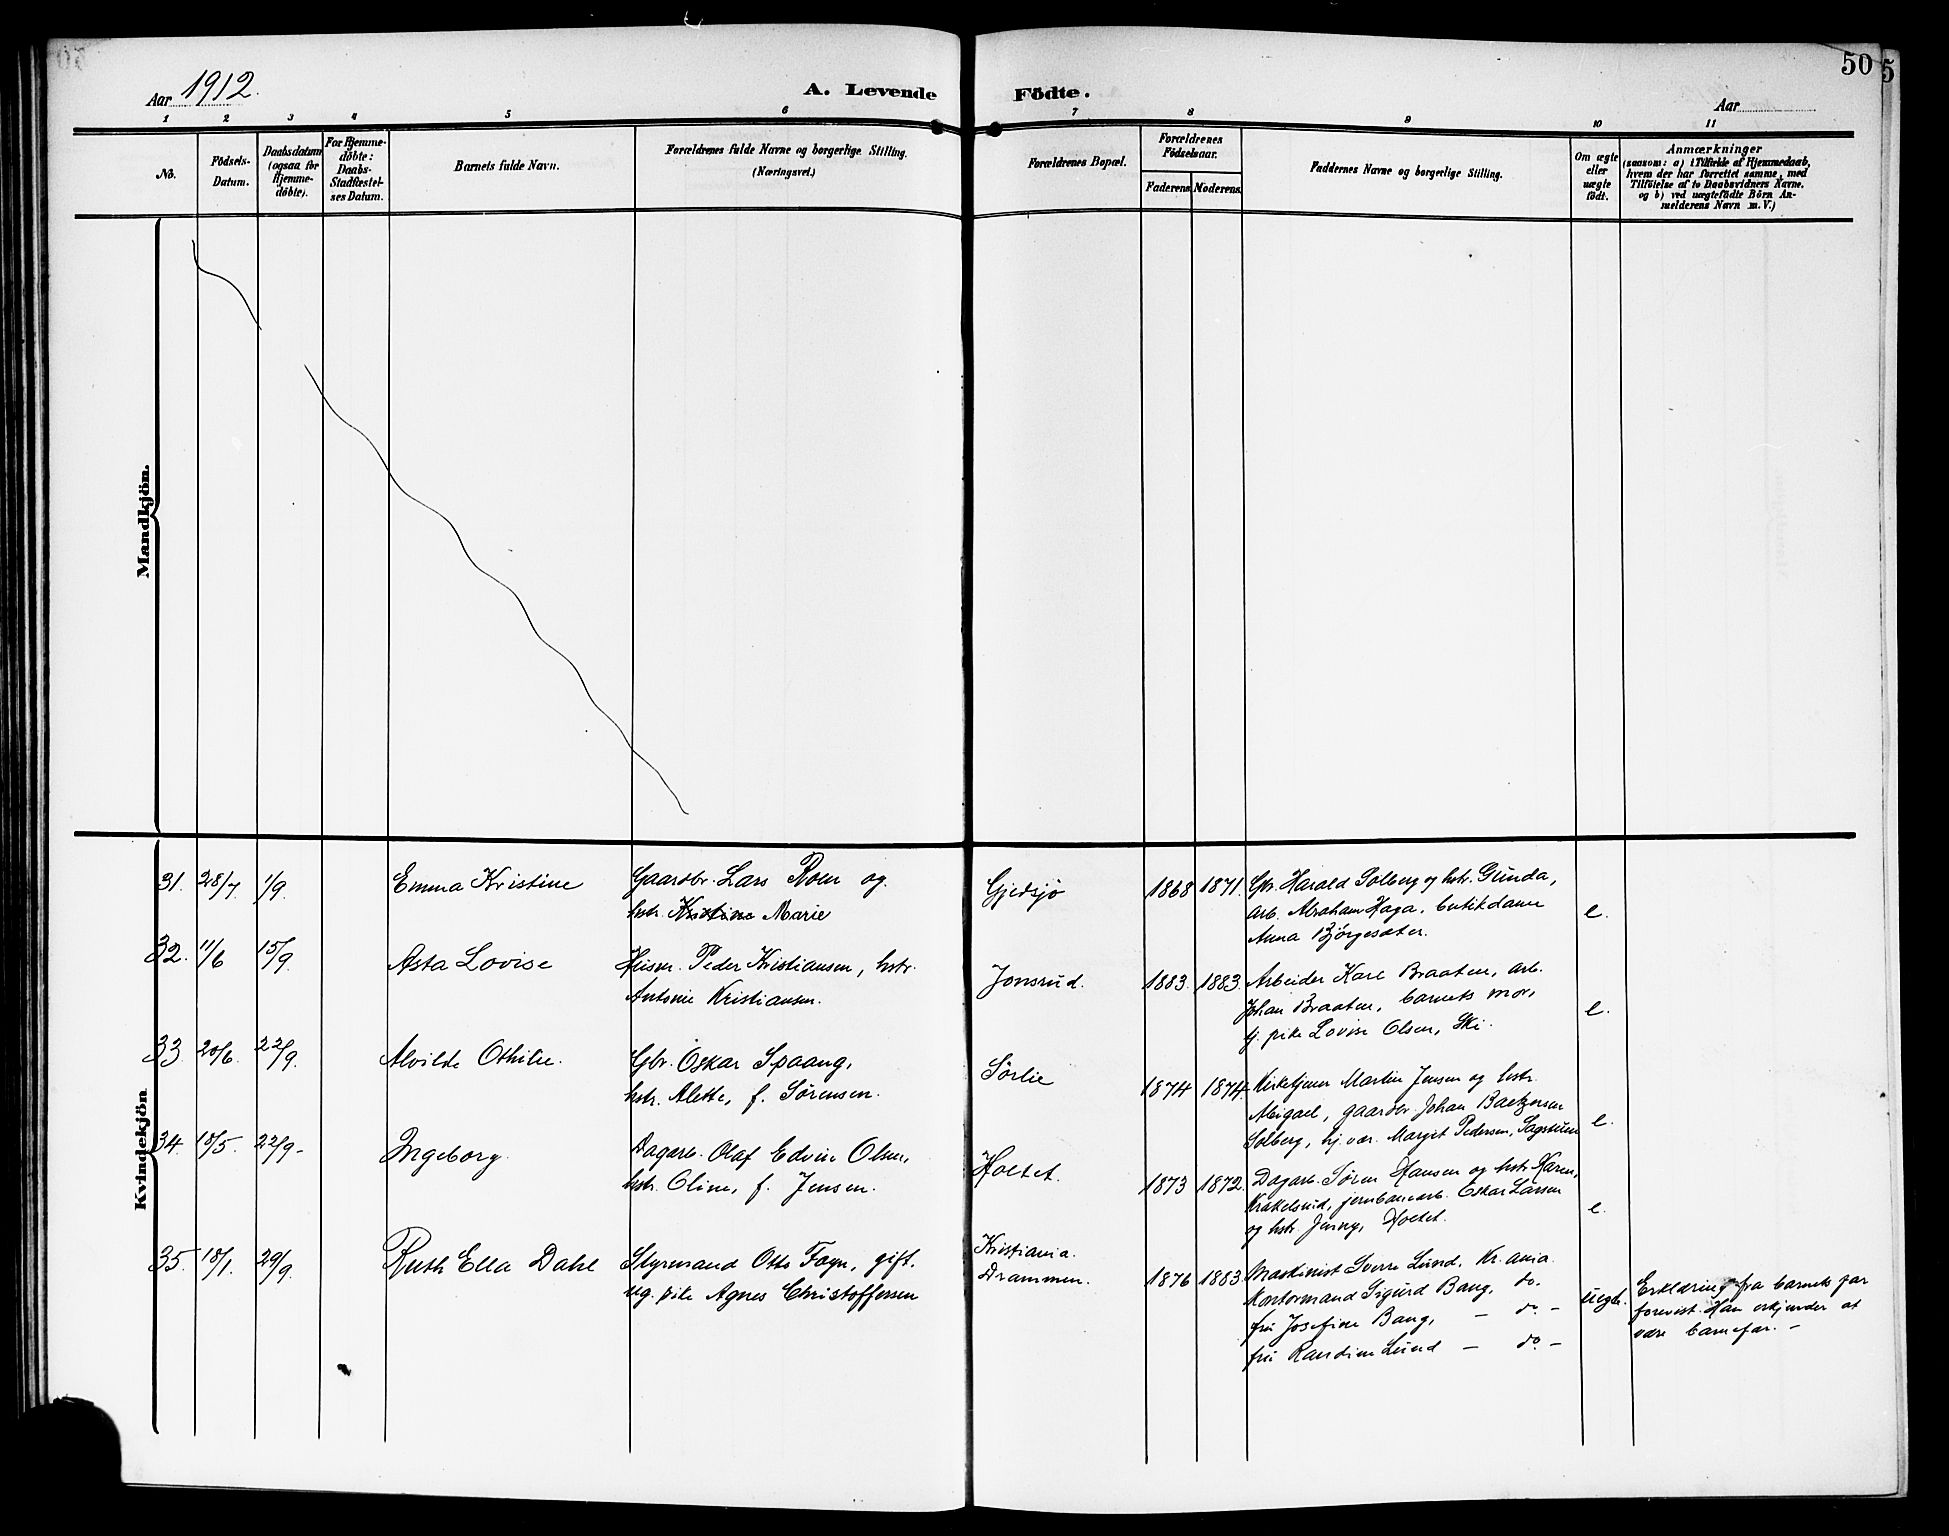 50
5
Aar 1912.
A. Levende Födte.
Aar
1 2 3 4 5 6 7 8 9 10 11
No.
Födsels-
Datum.
Daabsdatum
(ogsaa for
Hjemme-
döbte).
For Hjemme-
döbte:
Daabs-
Stadfæstel-
ses Datum.
Barnets fulde Navn.
Forældrenes fulde Navne og borgerlige Stilling.
(Næringsvei.)
Forældrenes Bopæl.
Forældrenes
Födselsaar.
Faderens. Moderens.
Faddernes Navne og borgerlige Stilling.
Om ægte
eller
uægte
födt.
Anmærkninger
(saasom: a) i Tilfælde af Hjemmedaab,
hvem der har forrettet samme, med
Tilföielse af to Daabsvidners Navne.
og b) ved uægtefödte Börn An-
melderens Navn m. V.)
Mandkjön.
Kvindekjön
31. 28/7 1/9. Emma Kristine
Gaardbr. Lars Roen og
hstr. Kristine Marie
Gjedsjø
1868 1871.
Gbr. Harald Solberg og hstr. Gunda,
arb. Abraham Haga, butikdame
Anna Bjørgesæter.
e.
32. 11/6 15/9. Asta Lovise
Husm. Peder Kristiansen, hstr.
Antonie Kristiansen.
Jonsrud.
1883. 1883.
Arbeider Karl Braaten, arb.
Johan Braaten, barnets mor,
tj. pike Lovise Olsen, Ski.
e.
33. 20/6. 22/9. Alvilde Othilie.
Gbr. Oskar Spaang,
hstr. Alette, f. Sørensen.
Sørlie
1874 1874.
Kirketjener Martin Jensen og hstr.
Abigael, gaardbr. Johan
Solberg, hj. vær. Margit Pedersen,
e.
34. 18/5. 22/9- Ingeborg.
Dagarb. Olaf Edvin Olsen,
hstr. Oline, f. Jensen.
Holtet.
1873 1872.
Dagarb. Søren Hansen og hstr. Karen,
Krakelsrud, jernbanearb. Oskar Larsen
og hstr. Jenny, Holtet.
e.
35. 18/1. 29/9. Ruth Ella Dahl
Styrmand Otto Fagn, gift.
ug. pike Agnes Christoffersen
Kristiania.
Drammen.
1876 1883.
Maskinist Sverre Lund, Kr.ania.
Kontormand Sigurd Bang, do.
fru Josefine Bang, - do -
fru Randine Lund - do -
uegte.
Erklæring fra barnets far
forevist. Han erkjender at
være barnefar. -